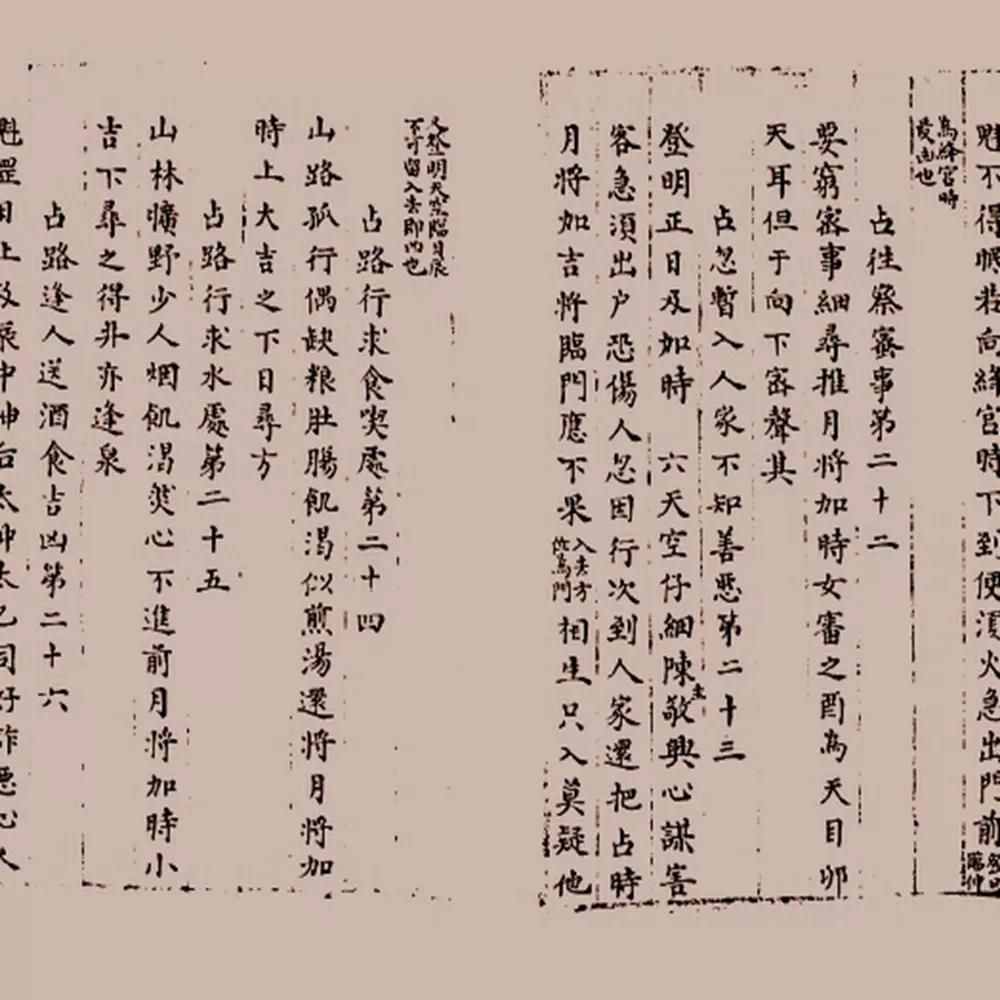 不得帳若向絳宮時下到便須火急出門前
為絳宮時
是也
占往察密事第二十二
要窮密事細尋推月將加時女審之酉為天目卯
天耳但于向下密聲其
占忽暫入人家不知善惡第二十三
登明正日及加時 六天空仔細陳敬興心謀害
主
客急須出户恐傷人忽因行次到人家還把占時
月將加吉將臨門應不果
入去方
位為門
相生只入莫疑他
又登明天空臨日辰
不可留入去即凶也
占路行求食喫處第二十四
山路孤行偶缺粮肚腸飢渴似煎湯還將月將加
時上大吉之下日尋方
占路行求水處第二十五
山林曠野少人烟飢渴熒心不進前月將加時小
吉下尋之得卦亦逢泉
占路逢人送酒食吉凶第二十六